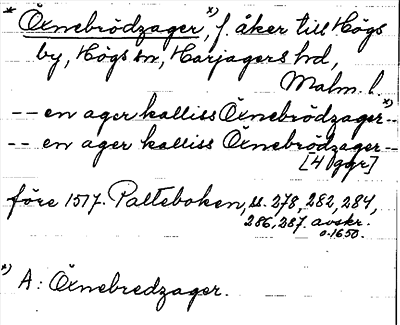 * Öxnebrödzager,*) f. åker till Högs
by, Högs sn, Harjagers hd,
Malm. l.
-- en ager kalliss Öxnebrödzager*)--
-- en ager kalliss Öxnebrödzager--
[4 ggr]
före 1517. Palteboken, ss. 278, 282, 284,
286, 287. avskr.
o. 1650.
*) A: Öxnebredzager.